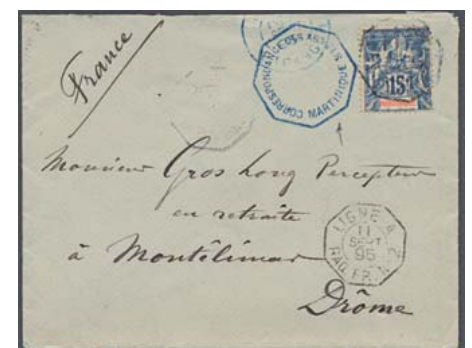 France
CORRESPONDANCE DES ARMÉES MARTINIQUE
15
Monsieur Gros Long Percepteur
en retraite
à Montélimar
Drôme
LIGNE A
11
SEPT
95
PAQ. FR. N. 2